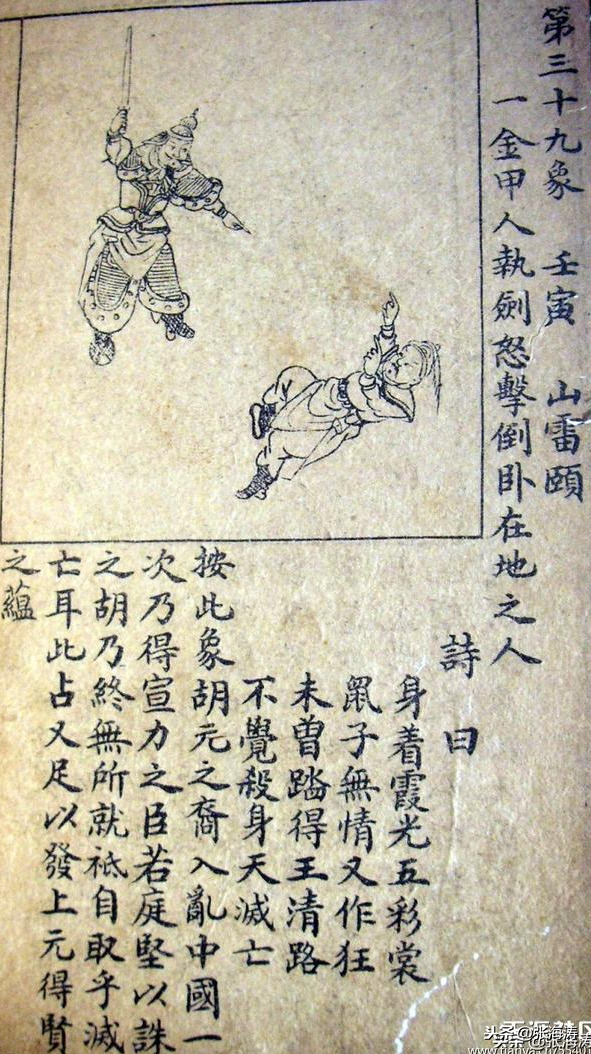 第三十九象　壬寅　山雷頤
一金甲人執劍怒擊倒卧在地之人
詩曰
身着霞光五彩裳
鼠子無情又作狂
未曾踏得王清路
不覺殺身天滅亡
按此象胡元之裔入亂中國一
次乃得宣力之臣若庭堅以誅
之胡乃終無所就祇自取乎滅
亡耳此占又足以發上元得賢
之蘊
头条@张海涛